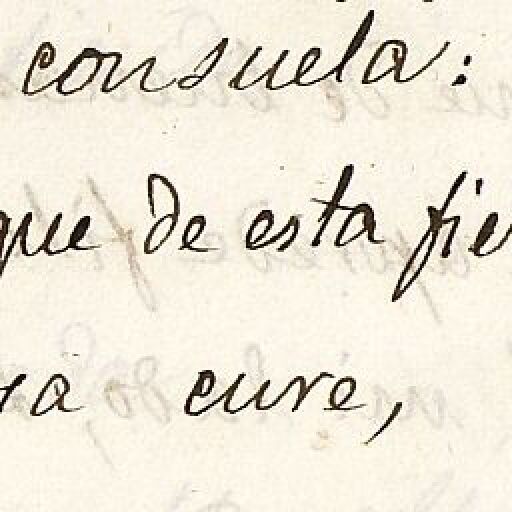 consuela:
que de esta fie
ra cure,